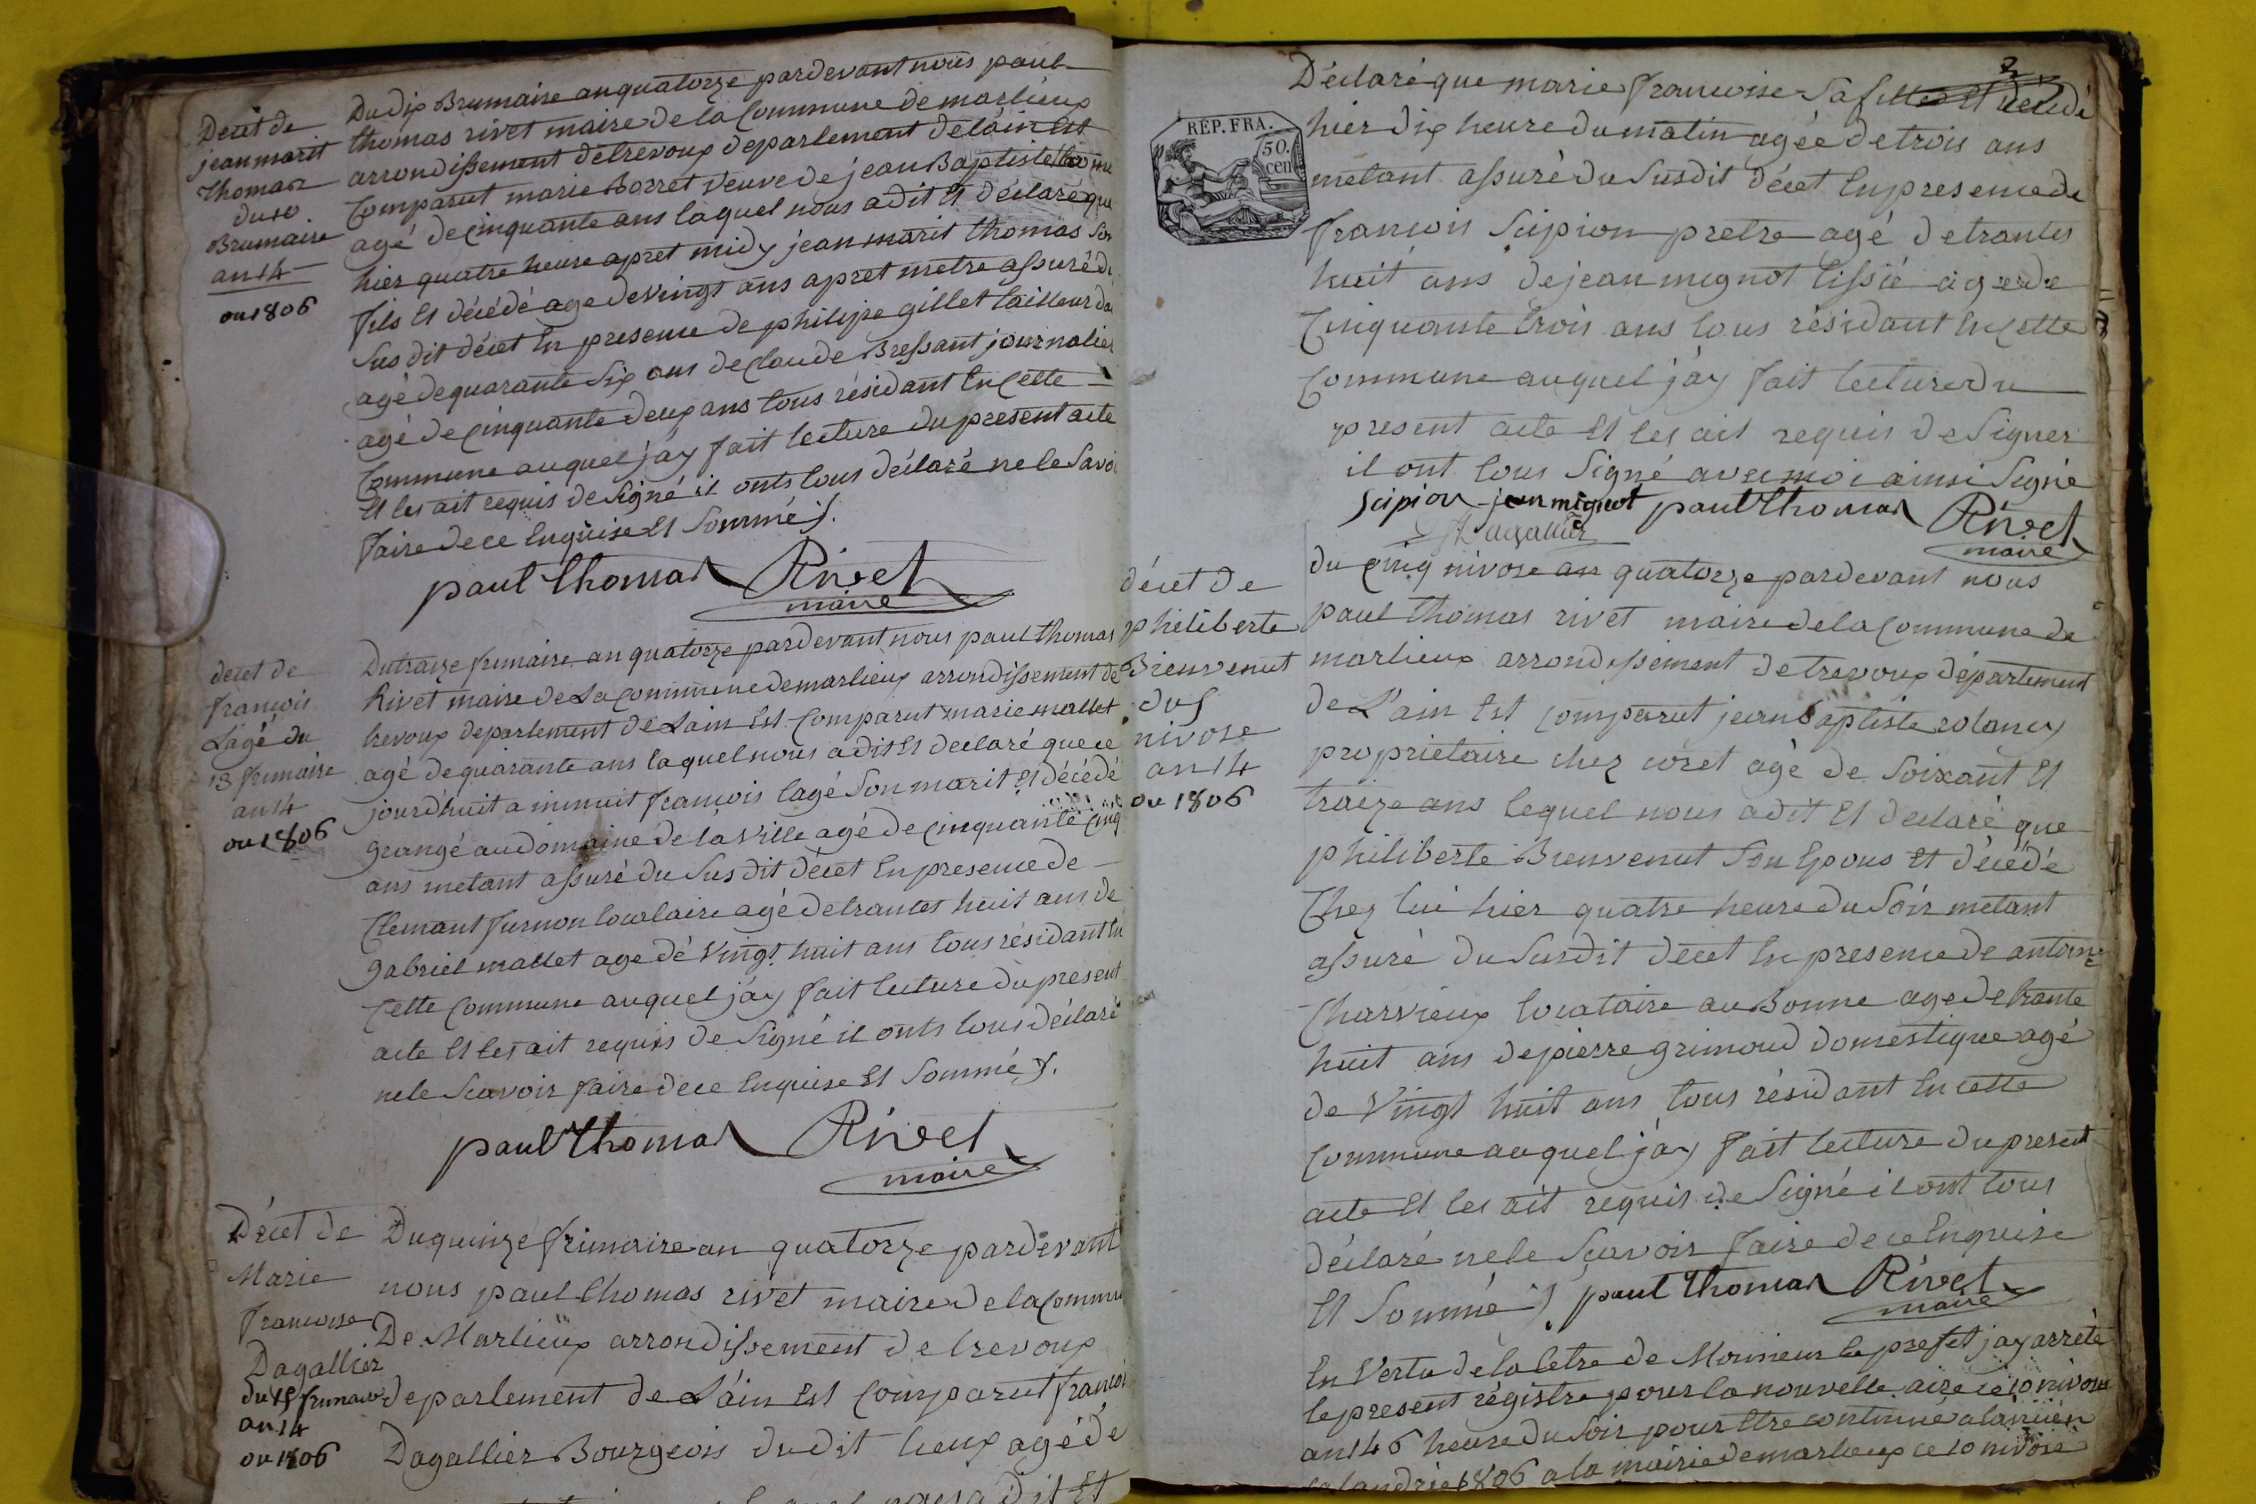 Decet de
jean marit
thomas
du 10
Brumaire
an 14
ou 1806
Du dix Brumaire an quatorze pardevant nous paul
thomas rivet maire de la Commune de marlieux
arrondissement de trevoux departement de lain Est
Comparut marie Borret Veuve de jean Baptiste
agé de cinquante ans laquel nous a dit Et déclaré que
hier quatre heure apret midy jean marit thomas son
fils Et décédé age de vingt ans apret metre assuré du
susdit décet En presence de philipe gillet tailleur
agé de quarante six ans de Claude Bressant journalier
agé de cinquante deux ans tous résidant En Cette
Commune auquel j'ay fait lecture du present acte
Et les ait requis de signé il onts tous déclaré ne le savoir
faire de ce Enquise Et Sommé
paul thomas Rivet
maire
decet de
francois
Lagé du
13 frimaire
an 14
ou 1806
Du traize frimaire an quatorze pardevant nous paul thomas
Rivet maire de La Commune de marlieux arrondissement de
trevoux departement de Lain Est Comparut marie mallet
agé de quarante ans laquel nous a dit Et declaré que ce
jourdhuit a minuit francois lagé son marit Et décédé
grangé au domaine de la Ville agé de cinquante cinq
ans metant assuré du susdit décet En presence de
Clemant furnon locataire agé de trantes huit ans de
gabriel mallet age de Vingt huit ans tous résidant En
Cette Commune auquel j'ay fait lecture du present
acte Et les ait requis de signé il onts tous déclaré
ne le scavoir faire de ce Enquise Et Sommé
paul thomas Rivet
maire
Décet de
Marie
francoise
Dagallier
du 15 frimaire
an 14
ou 1806
Du quinze frimaire an quatorze pardevant
nous paul thomas rivet maire de la Commu
De Marlieux arrondissement de trevoux
departement de L'ain Est Comparut francois
Dagallier Bourgeois dudit lieux agé de
nous a dit Et
2
Déclaré que marie francoise sa fille Et décédé
RÉP. FRA.
50.
cen
hier dix heure du matin agée de trois ans
metant assuré du susdit décet En presence de
francois Scipion pretre agé de trantes
huit ans de jean mignot tissié age de
Cinquante trois ans tous résidant En Cette
Commune auquel j'ay fait lecture du
present acte Et les ait requis de Signer
il ont tous Signé avec moi ainsi Signé
Scipion jean mignot paul thomas Rivet
Dagallier maire
décet de
philiberte
Bienvenut
du 5
nivose
an 14
ou 1806
du cinq nivose an quatorze pardevant nous
paul thomas rivet maire de la Commune de
marlieux arrondissement de trevoux département
de L'ain Est Comparut jean Baptiste rolancy
proprietaire chez coret agé de soixant Et
traize ans lequel nous a dit Et declaré que
philiberte Bienvenut son Epous Et décédé
Chez lui hier quatre heure du soir metant
assuré du susdit décet En presence de antoine
Charvieux locataire au Bonne age de trante
huit ans de pierre grimoud domestique agé
de Vingt huit ans tous résidant En cette
Commune auquel j'ay fait lecture du present
acte Et les ait requis de Signé il ont tous
déclaré ne le scavoir faire de ce Enquise
Et Sommé paul thomas Rivet
maire
En Vertu de la letre de Monsieur le prefet jay arreté
le present régistre pour la nouvelle aire ce 10 nivose
an 14 6 heure du soir pour Etre continué a lancien
calandrie 1806 a la mairie de marlieux ce 10 nivose